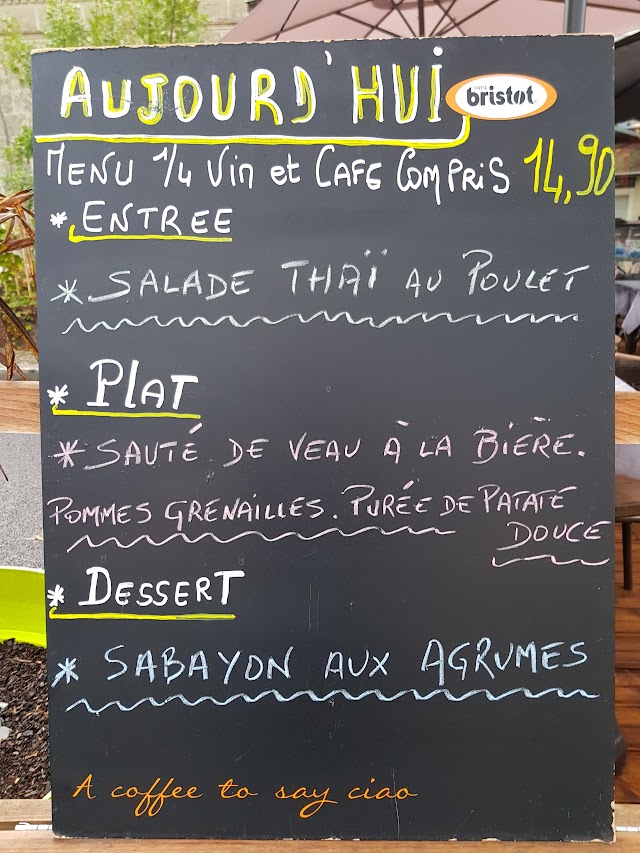 AUJOURD'HUI
CAFFÈ
bristot
MENU 1/4 Vin et CAFE COMPRIS 14,90
* ENTREE
* SALADE THAÏ AU POULET
* PLAT
* SAUTÉ DE VEAU À LA BIÈRE.
POMMES GRENAILLES. PURÉE DE PATATE
DOUCE
* DESSERT
* SABAYON AUX AGRUMES
A coffee to say ciao